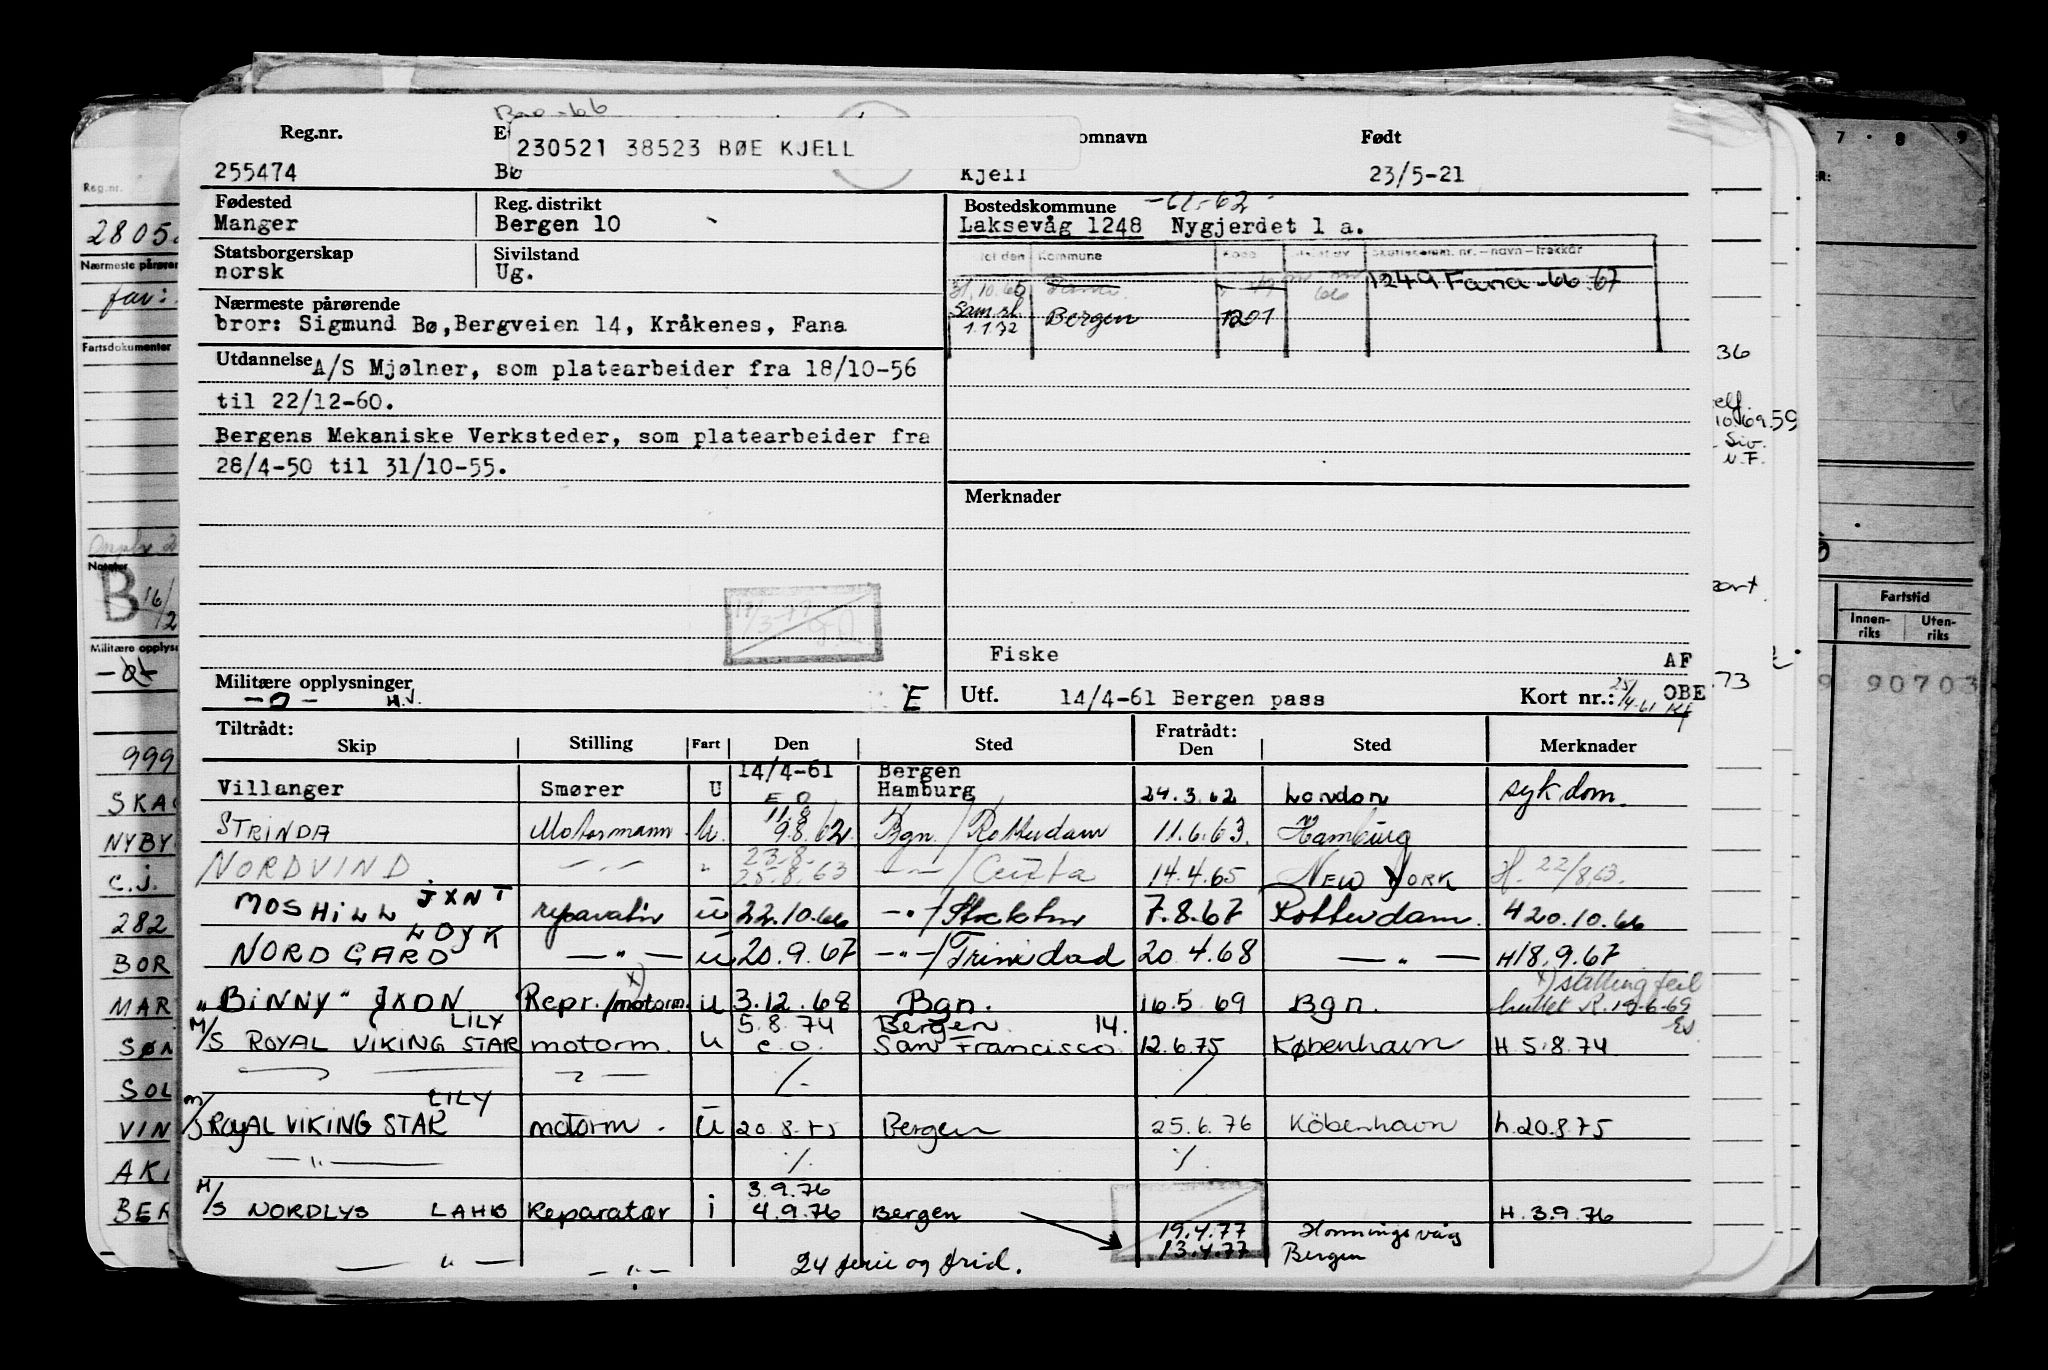 Boe -66
Reg.nr.
230521 38523 BØE KJELL
omnavn
Født
255474
Bø
Kjell
23/5-21
Fødested
Manger
Reg. distrikt
Bergen 10
Bostedskommune -61-62
Laksevåg 1248 Nygjerdet 1 a.
Statsborgerskap
norsk
Sivilstand
Ug.
Kommune
1249 Fana -66-67
Nærmeste pårørende
bror: Sigmund Bø, Bergveien 14, Kråkenes, Fana
Sam.sl.
1.1.72
Bergen
1201
Utdannelse
A/S Mjølner, som platearbeider fra 18/10-56
til 22/12-60.
Bergens Mekaniske Verksteder, som platearbeider fra
28/4-50 til 31/10-55.
Merknader
Fiske
AF
Militære opplysninger
-0- H.J.
E
Utf. 14/4-61 Bergen pass
Kort nr.: 25/4.61 OBE
Tiltrådt:
Skip
Stilling
Fart
Den
Sted
Fratrådt:
Den
Sted
Merknader
Villanger Smører U 14/4-61 Bergen Hamburg 24.3.62 London sykdom.
STRINDA Motormann U. 11.8 9.8.62 Bgn./Rotterdam 11.6.63. Hamburg
NORDVIND - " - " 23.8. 25.8.63 - " -/Ceuta 14.4.65 NEW YORK H. 22/8.63.
MOSHILL JXNT reparatør u 22.10.66 - " -/Stockholm 7.8.67 Rotterdam. H 20.10.66
NORDGARD LDYK - " - u 20.9.67 - " -/Trinidad 20.4.68 - " - H 18.9.67
"BINNY" JXDN Repr./motorm. x) u 3.12.68 Bgn. 16.5.69 Bgn. x) stilling feil
M/S ROYAL VIKING STAR LILY motorm. u 5.8.74 e.o. Bergen San Francisco 14. 12.6.75 København H 5.8.74
M/S ROYAL VIKING STAR LILY motorm. U 20.8.75 Bergen 25.6.76 Köbenhavn h. 20.8.75
- " - ./. ./.
M/S NORDLYS LAHB Reparatør i 3.9.76 4.9.76 Bergen H. 3.9.76
19.4.77 Honningsvåg
13.4.77 Bergen
- " - - " - 24 ferie og frid.
Reg.nr.
2805
Nærmeste pårørende
far:
Fartsdokumenter
B 16/2
Militære opplysn
-0-
999
NYBY
C.J.
282
BOR
MAR
SØN
SOL
VIN
BER
7 8 9
36
10.69.59
Siv.
N.F.
73
Fartstid
Innen-
riks
Uten-
riks
9 90703